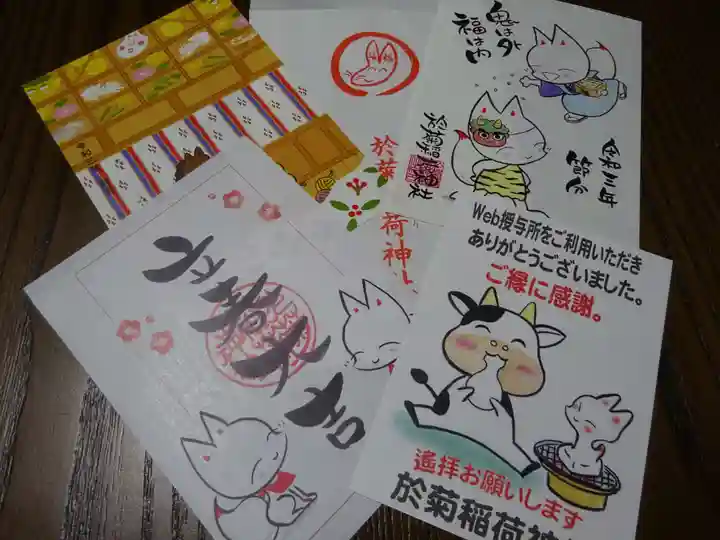 鬼は外
福は内
令和三年
節分
於菊稲荷神社
於菊
荷神
立春大吉
Web授与所をご利用いただき
ありがとうございました。
ご縁に感謝。
遙拝お願いします
於菊稲荷神